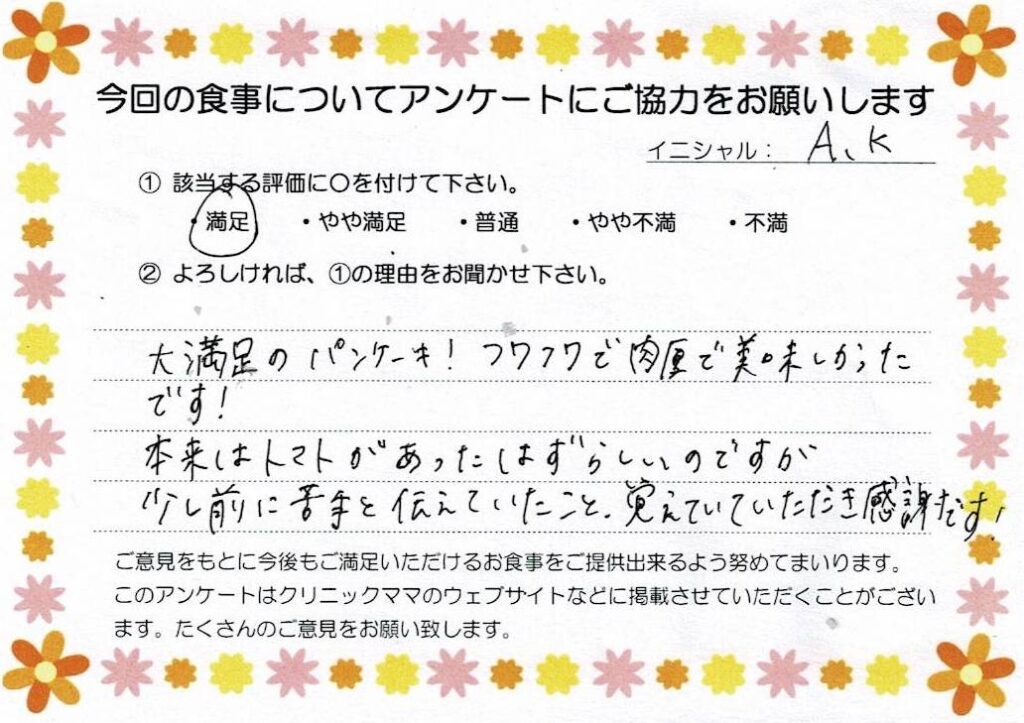 今回の食事についてアンケートにご協力をお願いします
イニシャル： A、K
① 該当する評価に〇を付けて下さい。
・満足 ・やや満足 ・普通 ・やや不満 ・不満
② よろしければ、①の理由をお聞かせ下さい。
大満足のパンケーキ！フワフワで肉厚で美味しかった
です！
本来はトマトがあったはずらしいのですが
少し前に苦手と伝えていたこと、覚えていていただき感謝です！
ご意見をもとに今後もご満足いただけるお食事をご提供出来るよう努めてまいります。
このアンケートはクリニックママのウェブサイトなどに掲載させていただくことがござい
ます。たくさんのご意見をお願い致します。